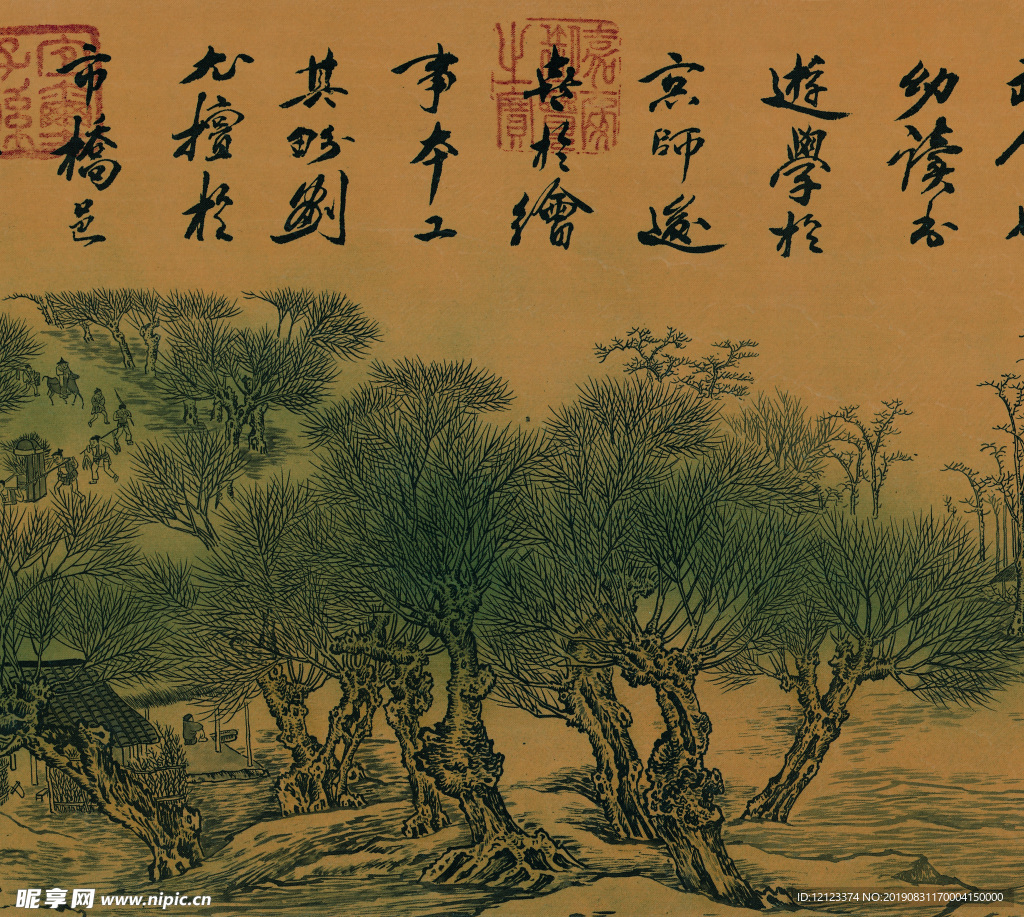 幼读书
遊學於
京師後
喜於繪
事本工
其畍劃
尤擅於
市橋邑
嘉慶御覽之寶
昵享网 www.nipic.cn
ID:12123374 NO:20190831170004150000